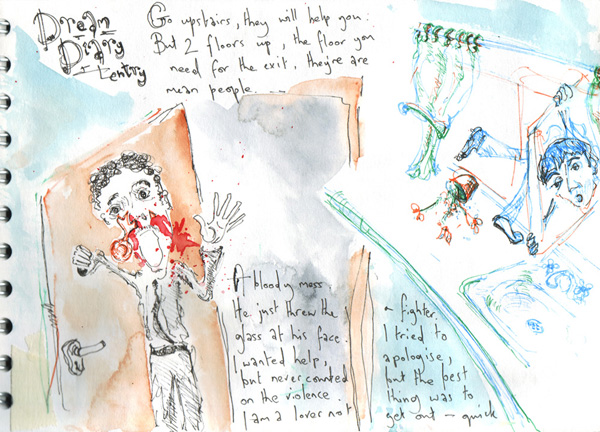 Dream
Diary
Entry
Go upstairs, they will help you.
But 2 floors up, the floor you
need for the exit, they're are
mean people....
A bloody mess.
He just threw the
glass at his face.
I wanted help,
but never counted
on the violence.
I am a lover not
a fighter.
I tried to
apologise,
but the best
thing was to
get out - quick